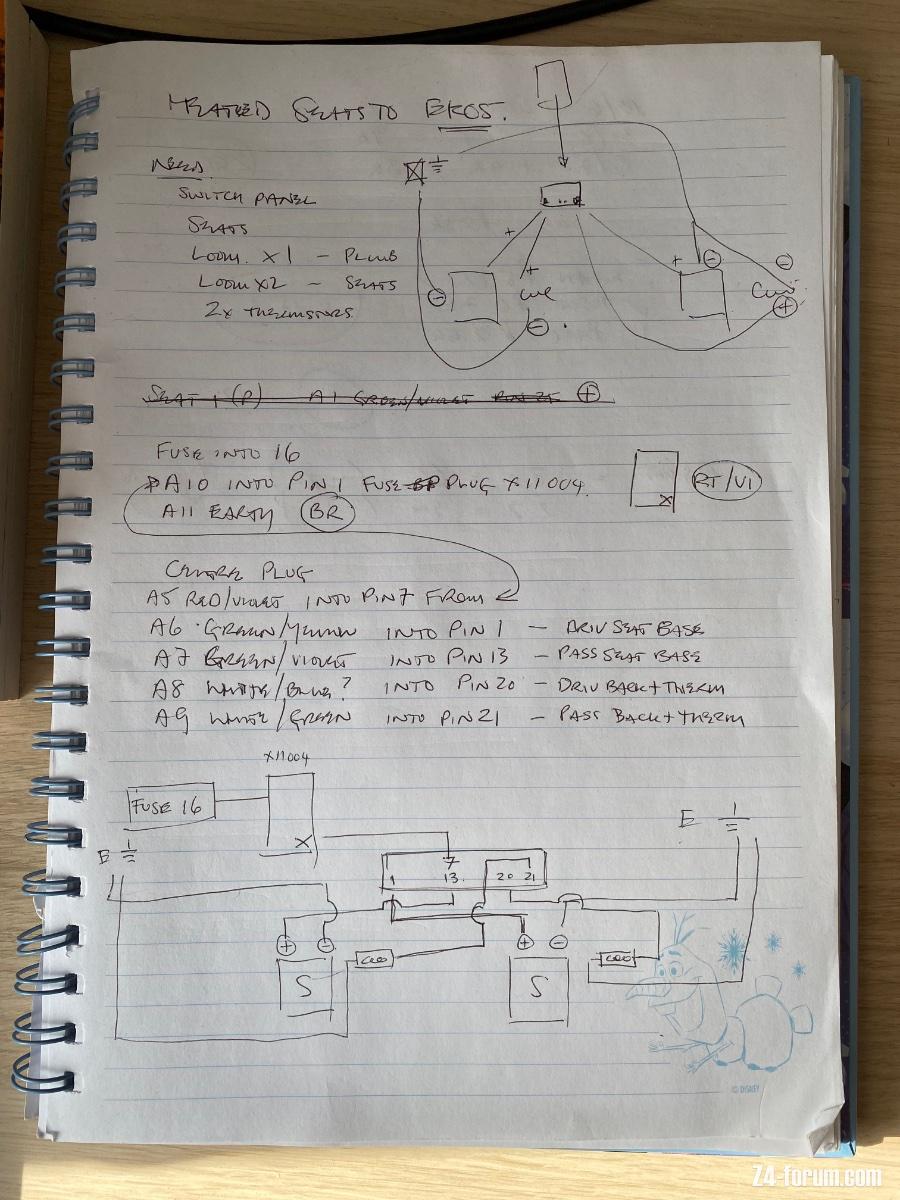 HEATED SEATS TO EKOS.
NEED
SWITCH PANEL
SEATS
LOOM x1 - PLUG
LOOM x2 - SEATS
2x THERMISTORS
+
+
+
⊖
⊖
⊖
⊖
⊕
SEAT 1 (P) A1 GREEN/VIOLET PIN 21 ⊕
FUSE INTO 16
A10 INTO PIN 1 FUSE PLUG X11004.
A11 EARTH BR
X
RT/VI
CENTRE PLUG
A5 RED/VIOLET INTO PIN 7 FROM
A6 GREEN/YELLOW INTO PIN 1 - DRIV SEAT BASE
A7 GREEN/VIOLET INTO PIN 13 - PASS SEAT BASE
A8 WHITE/BLUE? INTO PIN 20 - DRIV BACK + THERM
A9 WHITE/GREEN INTO PIN 21 - PASS BACK + THERM
X11004
FUSE 16
X
E
E
7
1 13. 20 21
⊕ ⊖ ⊕ ⊖
S S
© DISNEY
Z4-forum.com